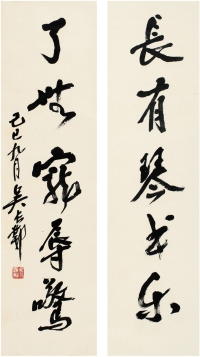 長有琴書樂
了無寵辱驚
己巳九月吳長鄴